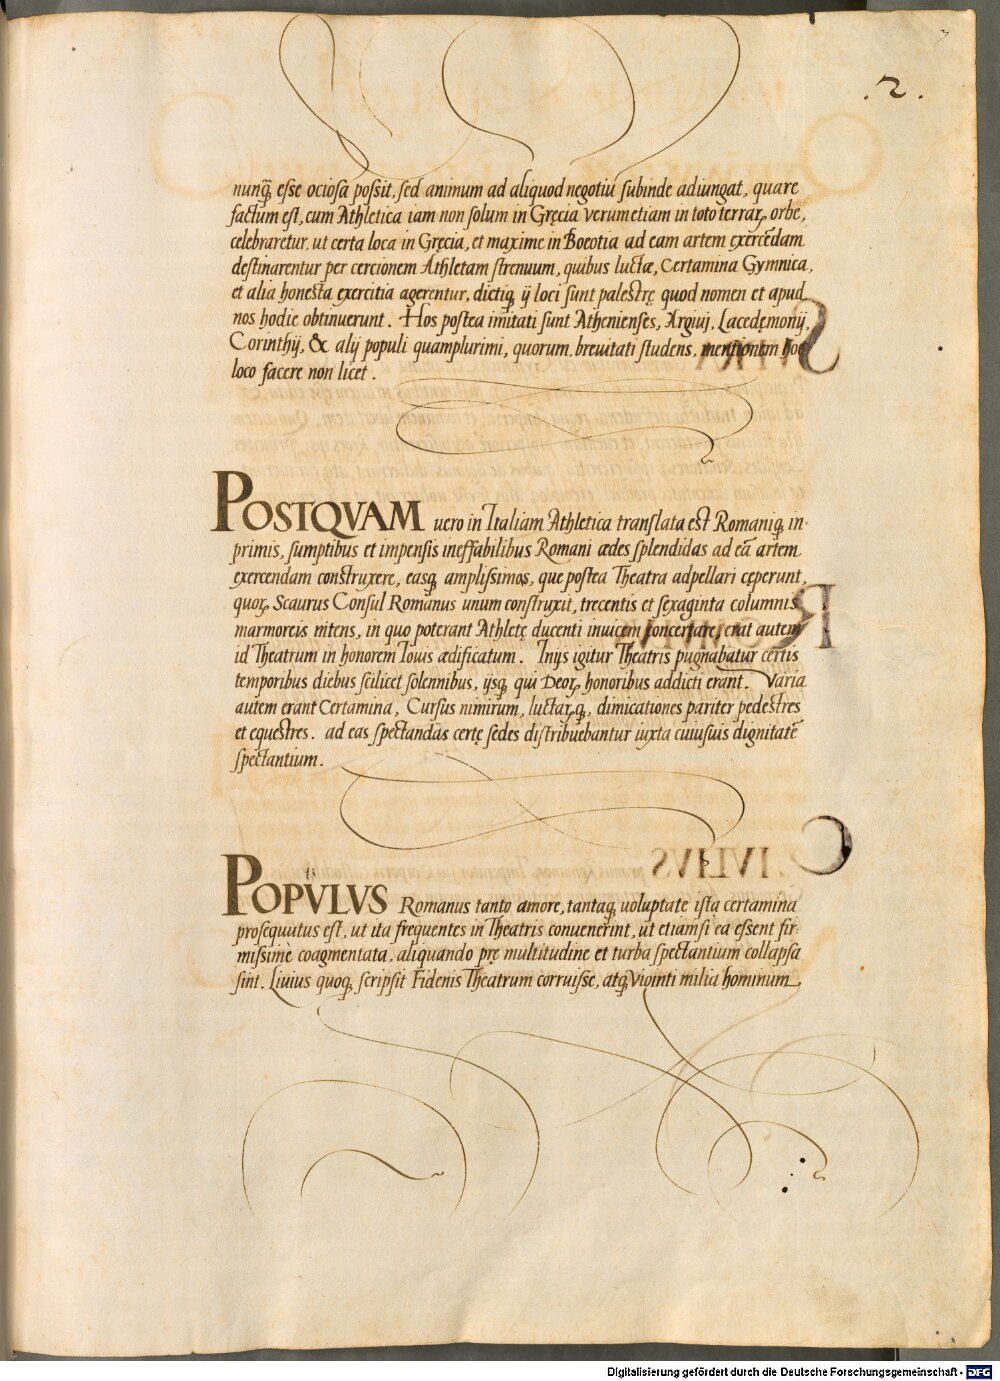 .2.
nunq̃ esse ociosa possit, sed animum ad aliquod negotiũ subinde adiungat, quare
factum est, cum Athletica iam non solum in Gręcia verum etiam in toto terrarꝝ orbe,
celebraretur, ut certa loca in Gręcia, et maxime in Boeotia ad eam artem exercẽdam
destinarentur per cercionem Athletam strenuum, quibus luctæ, Certamina Gymnica,
et alia honesta exercitia agerentur, dictiqꝫ ij loci sunt palestrę quod nomen et apud
nos hodie obtinuerunt. Hos postea imitati sunt Athenienses, Argiuj, Lacedęmonij,
Corinthij, & alij populi quamplurimi, quorum, breuitati studens, mentionem hoc
loco facere non licet.
POSTQVAM uero in Italiam Athletica translata est Romaniqꝫ in-
primis, sumptibus et impensis ineffabilibus Romani ædes splendidas ad eã artem
exercendam construxere, easqꝫ amplissimas, que postea Theatra adpellari cęperunt,
quorꝝ Scaurus Consul Romanus unum construxit, trecentis et sexaginta columnis
marmoreis nitens, in quo poterant Athletę ducenti inuicem concertare, erat autem
id Theatrum in honorem Iouis ædificatum. Inijs igitur Theatris pugnabatur certis
temporibus diebus scilicet solennibus, ijsqꝫ qui Deorꝝ honoribus addicti erant. Varia
autem erant Certamina, Cursus nimirum, luctarꝝqꝫ, dimicationes pariter pedestres
et equestres. ad eas spectandas certę sedes distribuebantur iuxta cuiusuis dignitatẽ
spectantium.
POPVLVS Romanus tanto amore, tantaqꝫ uoluptate ista certamina
prosequutus est, ut ita frequentes in Theatris conuenerint, ut etiamsi ea essent fir-
missime coagmentata, aliquando prę multitudine et turba spectantium collapsa
sint. Liuius quoqꝫ scripsit Fidenis Theatrum corruisse, atqꝫ viginti milia hominum
Digitalisierung gefördert durch die Deutsche Forschungsgemeinschaft - DFG